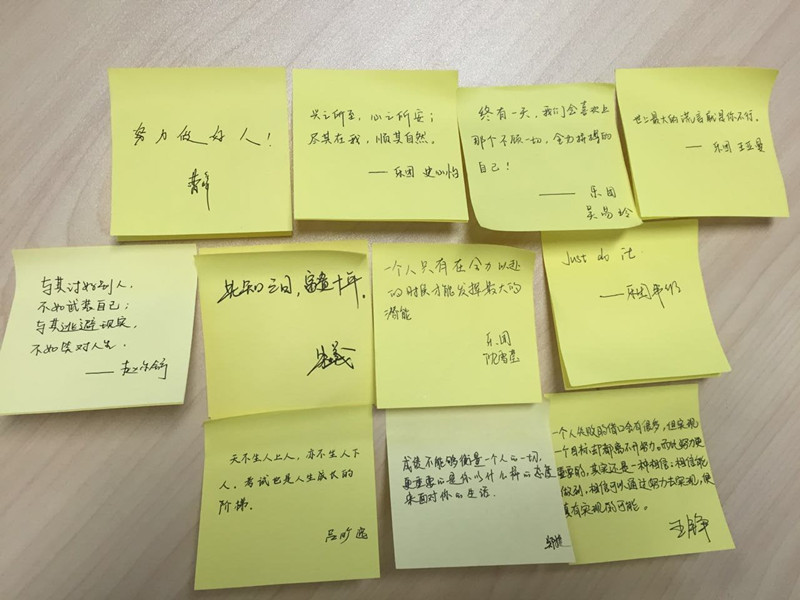 努力做好人！
兴之所至，心之所安；
尽其在我，顺其自然。
—— 乐团 史心怡
终有一天，我们会喜欢上
那个不顾一切，全力拼搏的
自己！
—— 乐团
吴易玲
世上最大的谎言就是你不行。
—— 乐团 王亚曼
与其讨好别人，
不如武装自己；
与其逃避现实，
不如笑对人生．
——
三日，富查十年。
一个人只有在全力以赴
的时候才能发挥最大的
潜能
乐团
Just do it
—— 乐团
天不生人上人，亦不生人下
人，考试也是人生成长的
阶梯．
吕昕逸
成绩不能够衡量一个人的一切，
更重要的是你以什么样的态度
来面对你的生活．
一个人失败的借口会有很多，但实现
一个目标，却都离不开努力。而比努力更
重要的，其实还是一种相信，相信能
做到，相信可以通过努力去实现，便
真有实现的可能。
王静